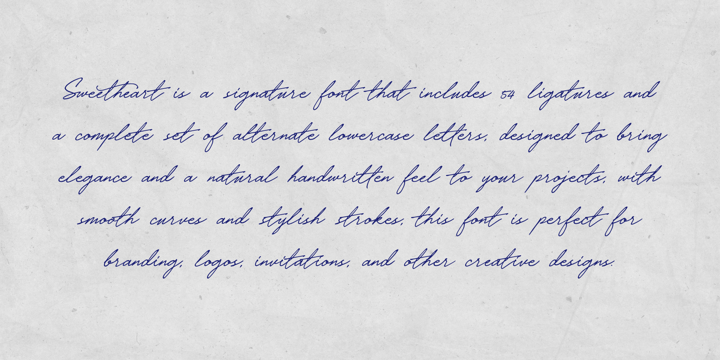 Sweetheart is a signature font that includes 54 ligatures and
a complete set of alternate lowercase letters, designed to bring
elegance and a natural handwritten feel to your projects, with
smooth curves and stylish strokes, this font is perfect for
branding, logos, invitations, and other creative designs.